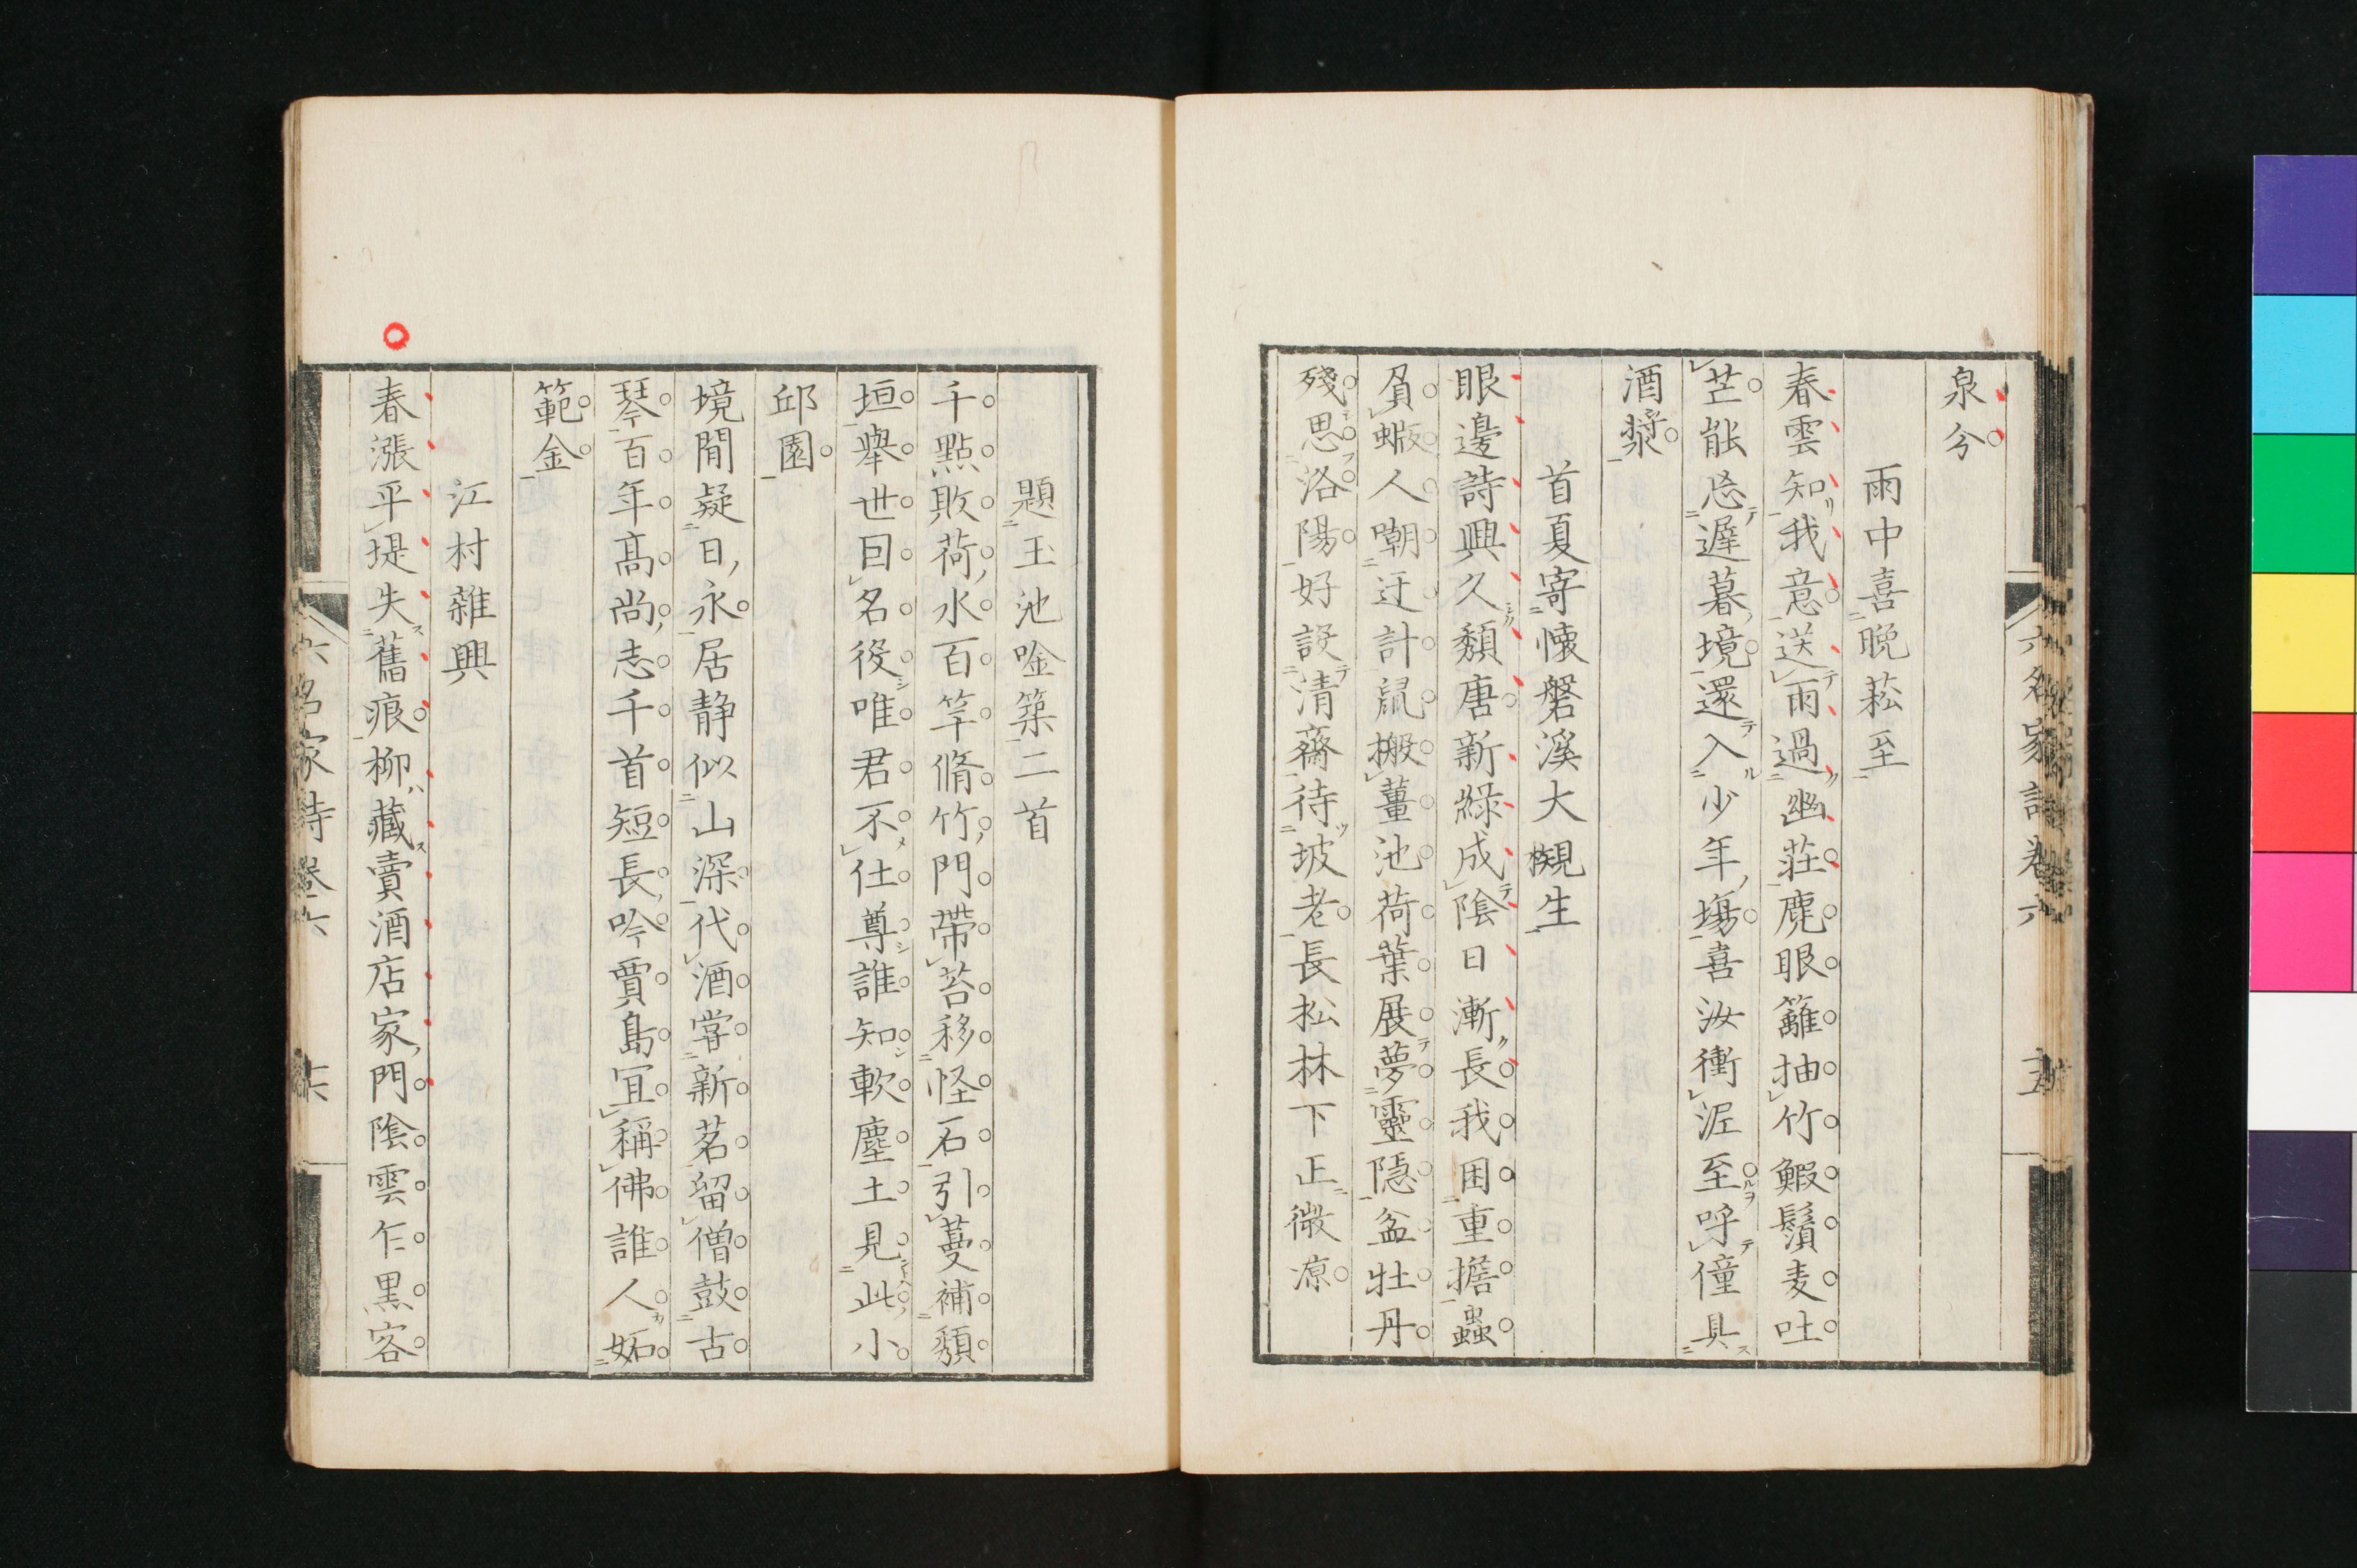 泉分
雨中喜晩菘至
春雲知我意送雨過幽莊鹿眼籬抽竹鰕鬚麦吐
芒能忘遲暮境還入少年塲喜汝衝泥至呼僮具
酒漿
首夏寄懐磐溪大槻生
眼邊詩興久頽唐新綠成陰日漸長我困重擔蟲
負蝂人嘲迂計鼠搬薑池荷葉展夢靈隠盆牡丹
殘思洛陽好設清齋待坡老長松林下正微凉
六名家詩卷六
題玉池唫築二首
千點敗荷水百竿脩竹門帶苔移怪石引蔓補頽
垣擧世囙名役唯君不仕尊誰知軟塵土見此小
邱園
境閒疑日永居静似山深代酒嘗新茗留僧鼓古
琴百年髙尚志千首短長吟賈島冝稱佛誰人妬
範金
江村雜興
春漲平堤失舊痕柳藏賣酒店家門陰雲乍黒客
六名家詩卷六